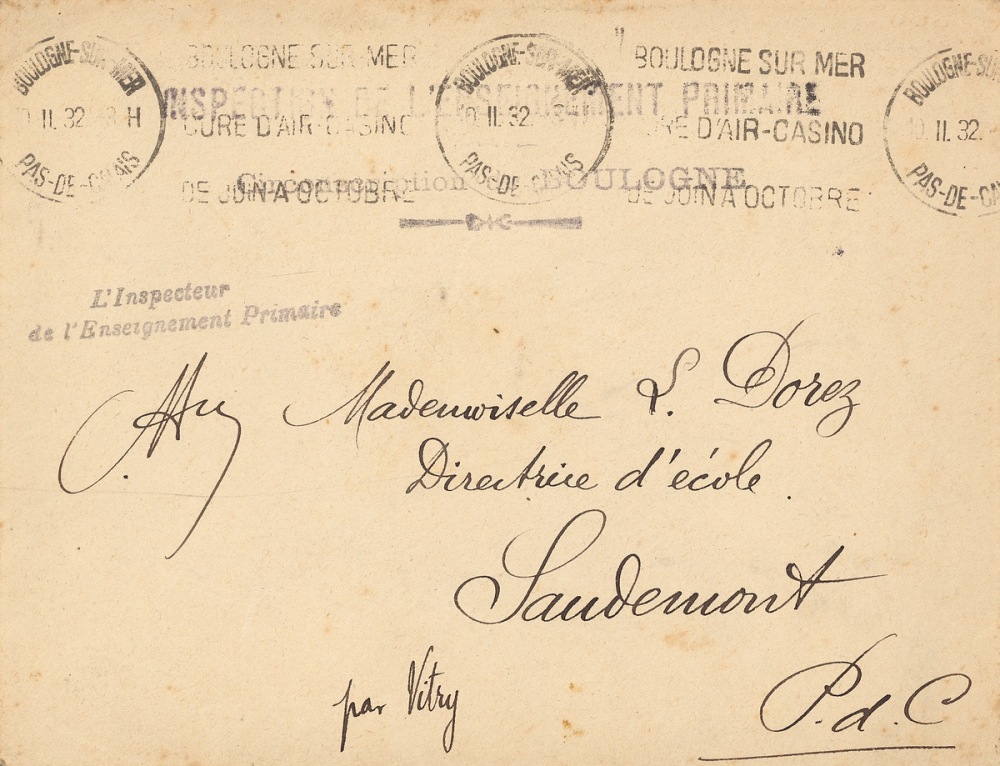 BOULOGNE-SUR-MER
II. 32
H
PAS-DE-CALAIS
BOULOGNE SUR MER
CURE D'AIR-CASINO
DE JUIN A OCTOBRE
BOULOGNE-SUR-MER
II. 32
PAS-DE-CALAIS
BOULOGNE SUR MER
CURE D'AIR-CASINO
DE JUIN A OCTOBRE
BOULOGNE-SUR
II. 32
PAS-DE-CA
INSPECTION DE L'ENSEIGNEMENT PRIMAIRE
Circonscription de BOULOGNE
L'Inspecteur
de l'Enseignement Primaire
Mademoiselle L. Dorez
Directrice d'école.
Saudemont
par Vitry
P.d.C